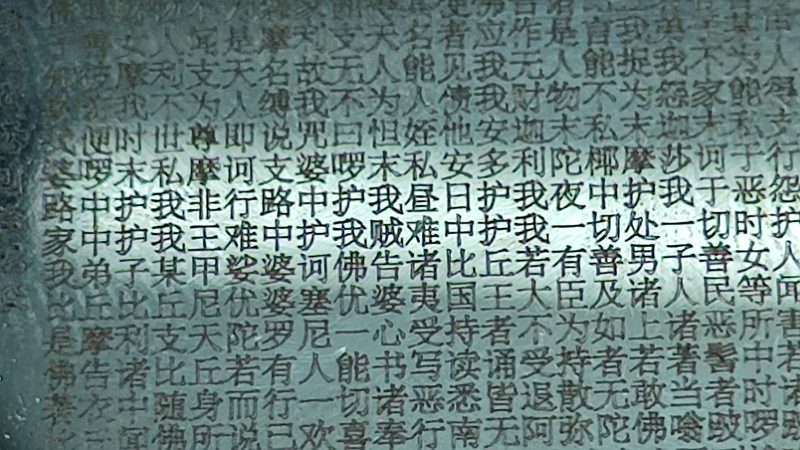 人闻是摩利支天名者应作是言我弟
摩利支天名故无人能见我无人能捉我不为人
我不为人缚我不为人债我财物不为怨家能得
便时世尊即说咒曰怛姪他安迦末私末迦末私支
婆啰末私摩诃支婆啰末私安多利陀椰摩莎诃于行
路中护我非行路中护我昼日护我夜中护我于恶怨
家中护我王难中护我贼难中护我一切处一切时护
我弟子某甲娑婆诃佛告诸比丘若有善男子善女人
比丘比丘尼优婆塞优婆夷国王大臣及诸人民等闻
是摩利支天陀罗尼一心受持者不为如上诸恶所害
佛告诸比丘若有人能书写读诵受持者若著髻中若
著衣中随身而行一切诸恶悉皆退散无敢当者时诸
闻佛所说已欢喜奉行南无阿弥陀佛嗡